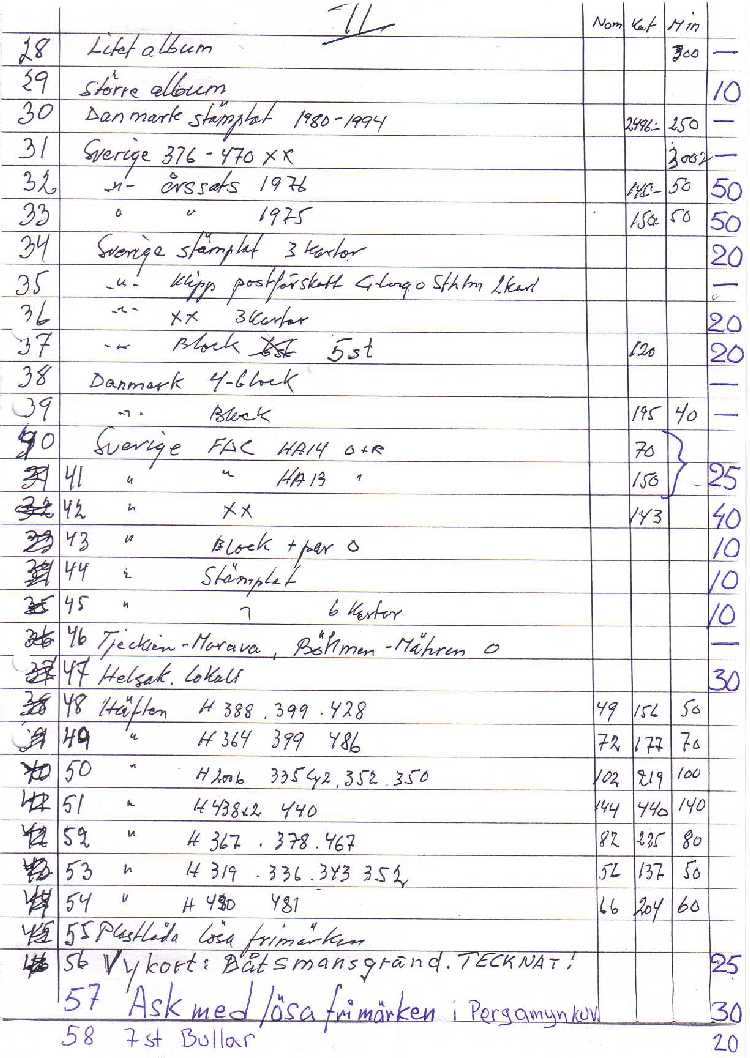 II
Nom Kat Min
28 Litet album 300 —
29 större album 10
30 Danmark stämplat 1980-1994 2496- 250 —
31 Sverige 376-470 xx 300 —
32 -"- årssats 1976 140- 50 50
33 " " 1975 150 50 50
34 Sverige stämplat 3 Kartor 20
35 -"- Klipp postförskott Sthlm 2 kart —
36 -"- xx 3 Kartor 20
37 -"- Block 5 st 120 20
38 Danmark 4-block —
39 -"- Block 195 40 —
40 Sverige FDC HA14 O+R 70
41 " " HA13 " 150 25
42 " xx 143 40
43 " Block + par O 10
44 " Stämplat 10
45 " " 6 Kartor 10
46 Tjeckien-Morava, Böhmen-Mähren O —
47 Helsak. Lokalt 30
48 Häften H 388 . 399 . 428 49 156 50
49 " H 364 399 486 72 177 70
50 " H 2006 335 352 . 350 102 219 100
51 " H 438 440 144 440 140
52 " H 367 . 378 . 467 82 235 80
53 " H 319 . 336 . 343 352 56 137 50
54 " H 480 481 66 204 60
55 Plastlåda lösa frimärken
56 Vykort: Båtsmansgränd. TECKNAT! 25
57 Ask med lösa frimärken i Pergamynkuv 30
58 7st Bullar 20